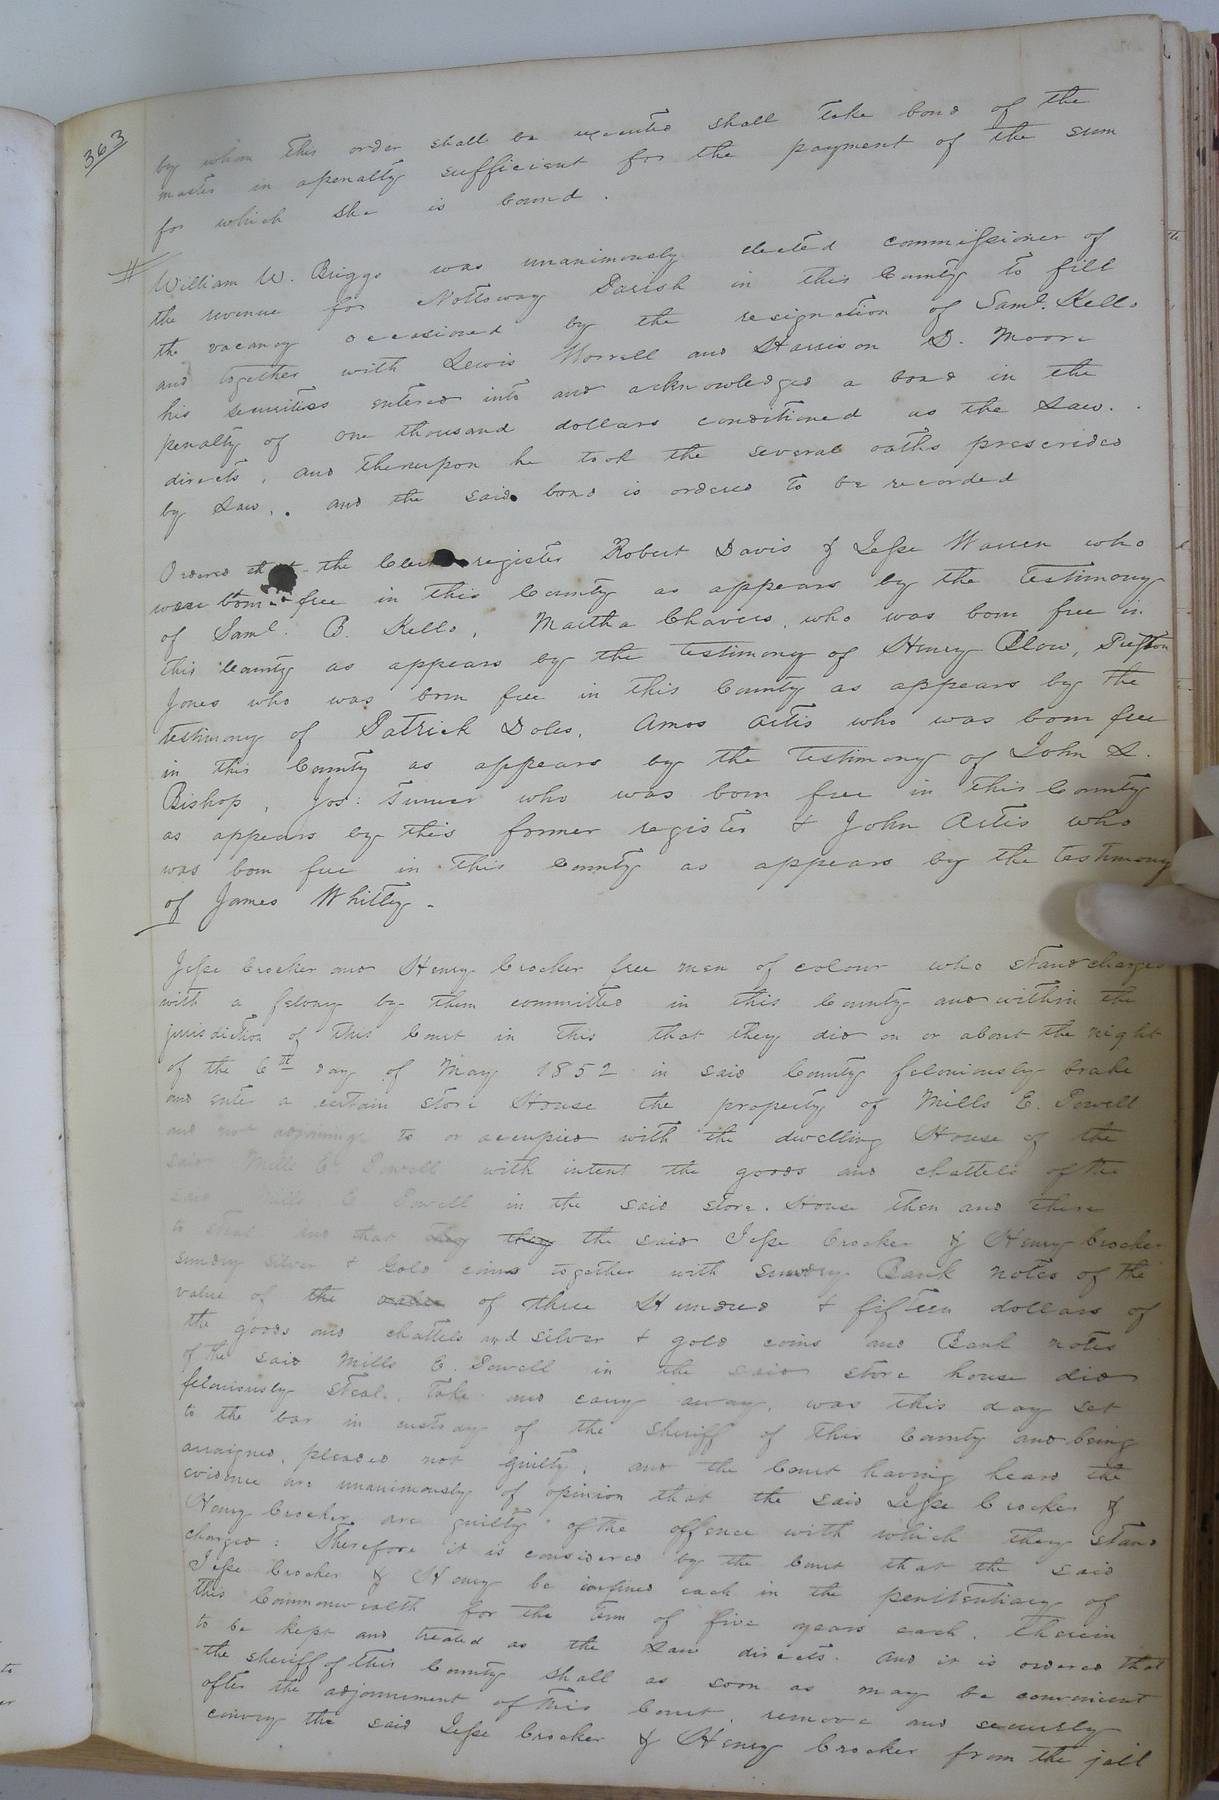 363
by whom this order shall be executed shall take bond of the
master in apenalty sufficient for the payment of the sum
for which she is bound.
William W. Briggs was unanimously elected commissioner of
the revenue for Nottoway Parish in this County to fill
the vacancy occasioned by the resignation of Saml. Kello
and together with Lewis Worrell and Harrison D. Moore
his securities entered into and acknowledged a bond in the
penalty of one thousand dollars conditioned as the Law.
directs, and thereupon he took the several oaths prescribed
by Law,. and the said bond is ordered to be recorded
Ordered that the Clerk register Robert Davis & Jesse Warren who
were born free in this County as appears by the testimony
of Saml. B. Kello, Martha Chavers, who was born free in
this County as appears by the testimony of Henry Blow, Preston
Jones who was born free in this County as appears by the
testimony of Patrick Doles, Amos Artis who was born free
in this County as appears by the testimony of John L.
Bishop, Jos: Turner who was born free in this County
as appears by this former register & John Artis who
was born free in this County as appears by the testimony
of James Whitty.
Jesse Crocker and Henry Crocker free men of colour who stand charged
with a felony by them committed in this County and within the
jurisdiction of this Court in this that they did on or about the night
of the 6th day of May 1852 in said County feloniously brake
and enter a certain store House the property of Mills E. Powell
and not adjoining to or occupied with the dwelling House of the
said Mills E. Powell with intent the goods and chattels of the
said Mills E. Powell in the said store House then and there
to steal and that they they the said Jesse Crocker & Henry Crocker
sundry silver & Gold coins together with sundry Bank notes of the
value of the of three Hundred & fifteen dollars of
the goods and chattels and silver & gold coins and Bank notes
of the said Mills E. Powell in the said store house did
feloniously steal, take and carry away, was this day set
to the bar in custody of the Sheriff of this County and being
arraigned, pleaded not guilty, and the Court having heard the
evidence are unanimously of opinion that the said Jesse Crocker &
Henry Crocker are guilty of the offence with which they stand
charged: Therefore it is considered by the Court that the said
Jesse Crocker & Henry be confined each in the penitentiary of
this Commonwealth for the term of five years each, therein
to be kept and treated as the Law directs. And it is ordered that
the sheriff of this County shall as soon as may be convenient
after the adjournment of this Court, remove and securely
convey the said Jesse Crocker & Henry Crocker from the jail